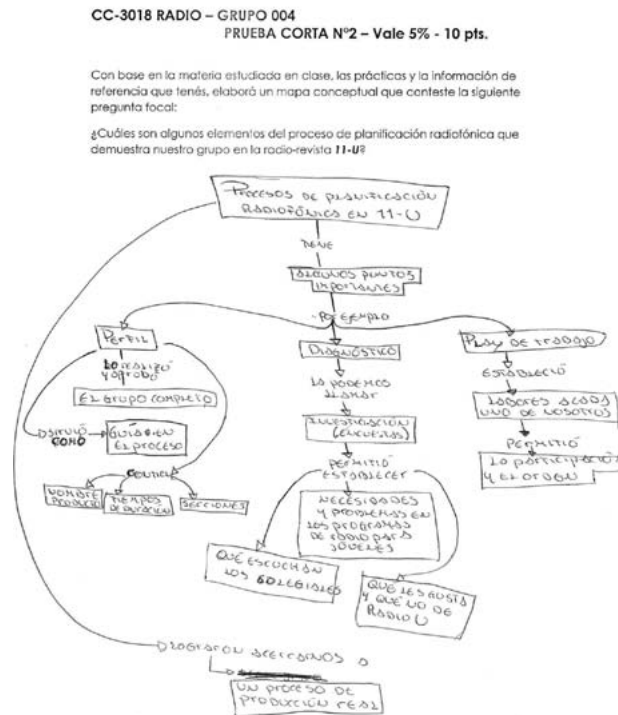 CC-3018 RADIO – GRUPO 004
PRUEBA CORTA Nº2 – Vale 5% - 10 pts.
Con base en la materia estudiada en clase, las prácticas y la información de
referencia que tenés, elaborá un mapa conceptual que conteste la siguiente
pregunta focal:
¿Cuáles son algunos elementos del proceso de planificación radiofónica que
demuestra nuestro grupo en la radio-revista 11-U?
PROCESOS DE PLANIFICACIÓN
RADIOFÓNICA EN 11-U
TIENE
ALGUNOS PUNTOS
IMPORTANTES
POR EJEMPLO
PERFIL
LO REALIZÓ
Y APROBÓ
EL GRUPO COMPLETO
COMO
GUÍA EN
EL PROCESO
NOMBRE
TIEMPOS
DE DURACIÓN
SECCIONES
DIAGNÓSTICO
LA PODEMOS
LLAMAR
INVESTIGACIÓN
(ENCUESTAS)
PERMITIÓ
ESTABLECER
NECESIDADES
Y PROBLEMAS EN
LOS PROGRAMAS
DE RADIO PARA
JÓVENES
QUÉ ESCUCHAN
LOS COLEGIALES
QUÉ LES GUSTA
Y QUÉ NO DE
RADIO U
PLAN DE TRABAJO
ESTABLECIÓ
LABORES A CADA
UNO DE NOSOTROS
PERMITIÓ
LA PARTICIPACIÓN
Y EL ORDEN
LOGRARON ACERCARNOS A
UN PROCESO DE
PRODUCCIÓN REAL